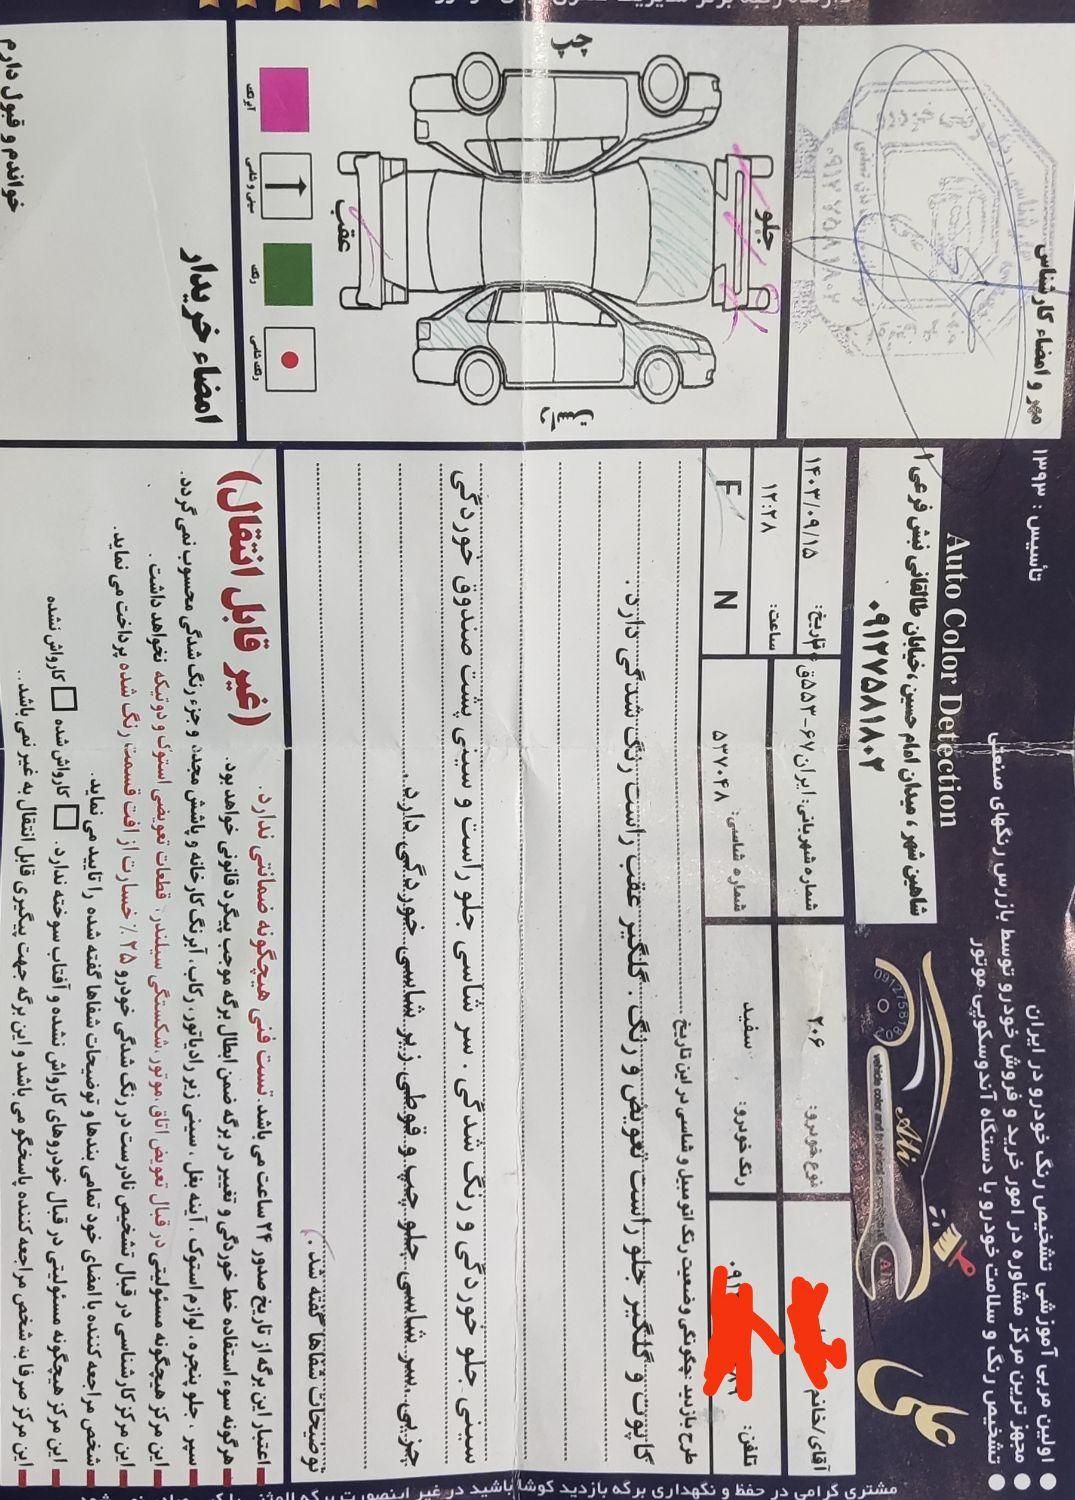 اولین مربی آموزشی تشخیص رنگ خودرو در ایران
مجهز ترین مرکز مشاوره در امور خرید و فروش خودرو توسط بازرس رنگهای صنعتی
تشخیص رنگ و سلامت خودرو با دستگاه آندوسکوپی موتور
تأسیس : ۱۳۹۳
علی
Ali
vehicle color and
Auto Color Detection
شاهین شهر ، میدان امام حسین ،خیابان طالقانی نبش فرعی ۱
۰۹۱۲۷۵۸۱۸۰۲
آقای/خانم
نوع خودرو: ۲۰۶
شماره شهربانی: ایران۶۷-۵۵۳ق
تاریخ: ۱۴۰۳/۰۹/۱۵
تلفن:
رنگ خودرو: سفید
شماره شاسی: ۵۳۷۰۴۸
ساعت: ۱۲:۲۸
F N
طرح بازدید چگونگی وضعیت رنگ اتومبیل و شاسی در این تاریخ
کاپوت و گلگیر جلو راست تعویض و رنگ . گلگیر عقب راست رنگ شدگی دارد.
سینی جلو خوردگی و رنگ شدگی . سر شاسی جلو راست و سینی پشت صندوق خوردگی
جزیی. سر شاسی جلو چپ و قوطی زیر شاسی خوردگی دارد.
توضیحات شفاها گفته شد.
مهر و امضاء کارشناس
جلو
عقب
چپ
راست
آبرنگ
سینی و شاسی
رنگ
رنگ شاسی
امضاء خریدار
خواندم و قبول دارم
(غیر قابل انتقال)
اعتبار این برگه از تاریخ صدور ۲۴ ساعت می باشد. تست فنی هیچگونه ضمانتی ندارد.
هرگونه سوء استفاده خط خوردگی و تغییر در برگه ضمن ابطال برگه موجب پیگرد قانونی خواهد بود.
سپر ، جلو پنجره ، لوازم استوک ، آینه بغل ، سینی زیر رادیاتور، رکاب، آبرنگ کارخانه و پاشش مجدد و جزء رنگ شدگی محسوب نمی گردد.
این مرکز هیچگونه مسئولیتی در قبال تعویض اتاق ،موتور،شکستگی سیلندر، قطعات تعویضی استوک و دوتیکه نخواهد داشت .
این مرکز کارشناسی در قبال تشخیص نادرست در رنگ شدگی خودرو ۲۵٪ خسارت از افت قسمت رنگ شده پرداخت می نماید.
شخص مراجعه کننده با امضای خود تمامی بندها و توضیحات شفاها گفته شده را تایید می نماید.
این مرکز هیچگونه مسئولیتی در قبال خودروهای کارواش نشده و آفتاب سوخته ندارد. کارواش شده کارواش نشده
این مرکز صرفا به شخص مراجعه کننده پاسخگو می باشد و این برگه جهت پیگیری قابل انتقال به غیر نمی باشد..
مشتری گرامی در حفظ و نگهداری برگه بازدید کوشا باشید در غیر اینصورت برگه المثنی